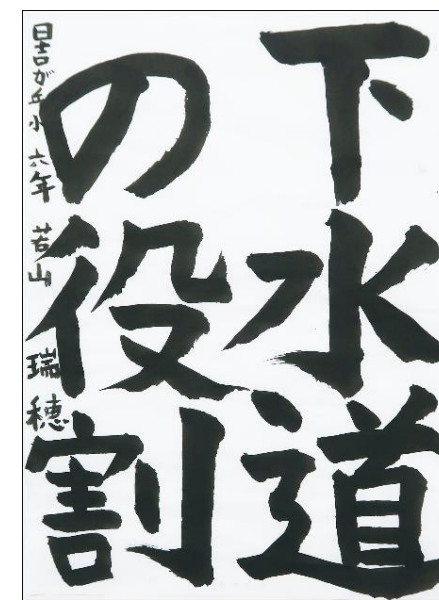 下水道
の役割
日吉が丘小 六年 若山 瑞穂